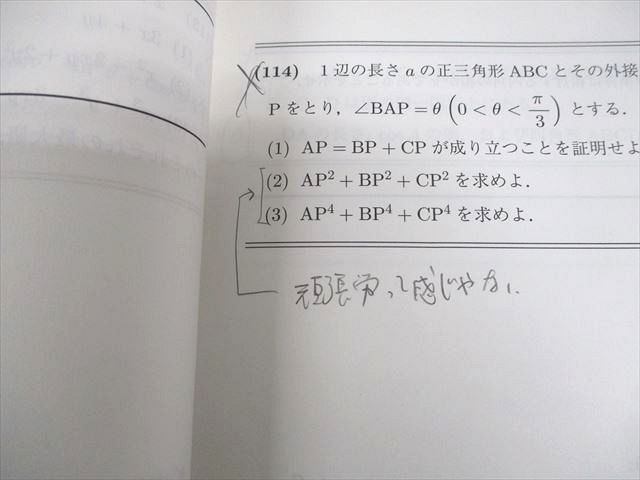 (114) 1辺の長さ a の正三角形 ABC とその外接
P をとり，∠BAP = θ (0 < θ < π/3) とする．
(1) AP = BP + CP が成り立つことを証明せよ
(2) AP² + BP² + CP² を求めよ．
(3) AP⁴ + BP⁴ + CP⁴ を求めよ．
って感じゃない